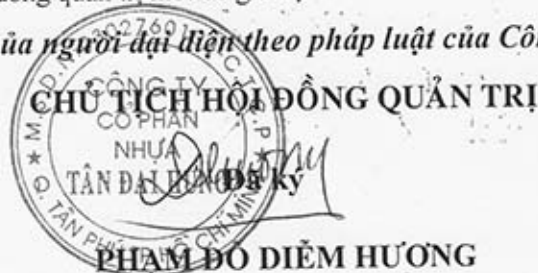 ủa người đại diện theo pháp luật của Côn
CHỦ TỊCH HỘI ĐỒNG QUẢN TRỊ
CÔNG TY
CỔ PHẦN
NHỰA
TÂN ĐẠI HƯNG
Đã ký
Q. TÂN PHÚ TP HỒ CHÍ MINH
PHẠM ĐỖ DIỄM HƯƠNG